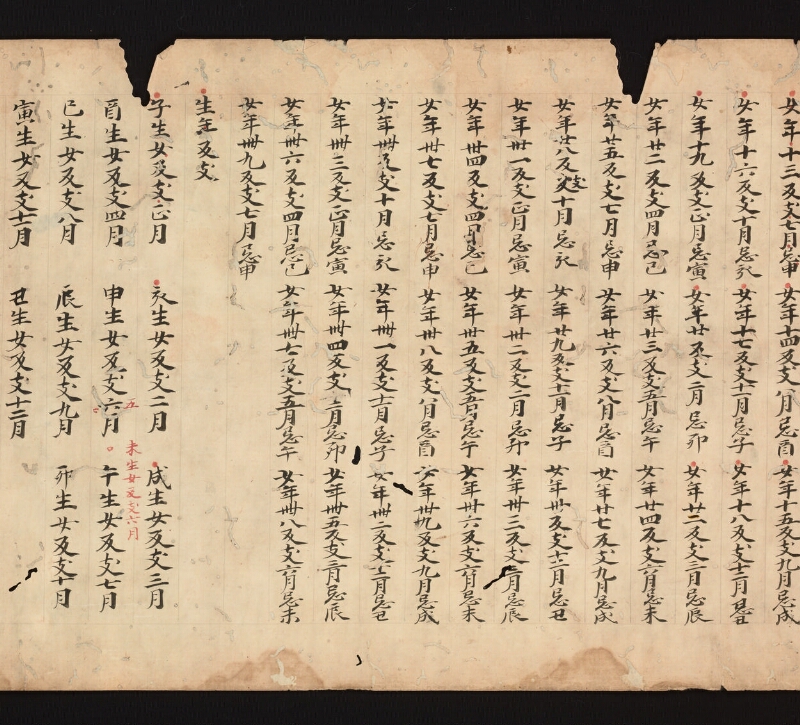 女年十三反支七月忌申 女年十四反支八月忌酉 女年十五反支九月忌戌
女年十六反支十月忌亥 女年十七反支十一月忌子 女年十八反支十二月忌丑
女年十九反支正月忌寅 女年廿反支二月忌卯 女年廿一反支三月忌辰
女年廿二反支四月忌巳 女年廿三反支五月忌午 女年廿四反支六月忌未
女年廿五反支七月忌申 女年廿六反支八月忌酉 女年廿七反支九月忌戌
女年廿八反支十月忌亥 女年廿九反支十一月忌子 女年卅反支十二月忌丑
女年卅一反支正月忌寅 女年卅二反支二月忌卯 女年卅三反支三月忌辰
女年卅四反支四月忌巳 女年卅五反支五月忌午 女年卅六反支六月忌未
女年卅七反支七月忌申 女年卅八反支八月忌酉 女年卅九反支九月忌戌
女年卌反支十月忌亥 女年卌一反支十一月忌子 女年卌二反支十二月忌丑
女年卌三反支正月忌寅 女年卌四反支二月忌卯 女年卌五反支三月忌辰
女年卌六反支四月忌巳 女年卌七反支五月忌午 女年卌八反支六月忌未
女年卌九反支七月忌申
生年反支
子生女反支正月 亥生女反支二月 戌生女反支三月
酉生女反支四月 申生女反支六月 午生女反支七月
五
未生女反支六月
巳生女反支八月 辰生女反支九月 卯生女反支十月
寅生女反支十一月 丑生女反支十二月